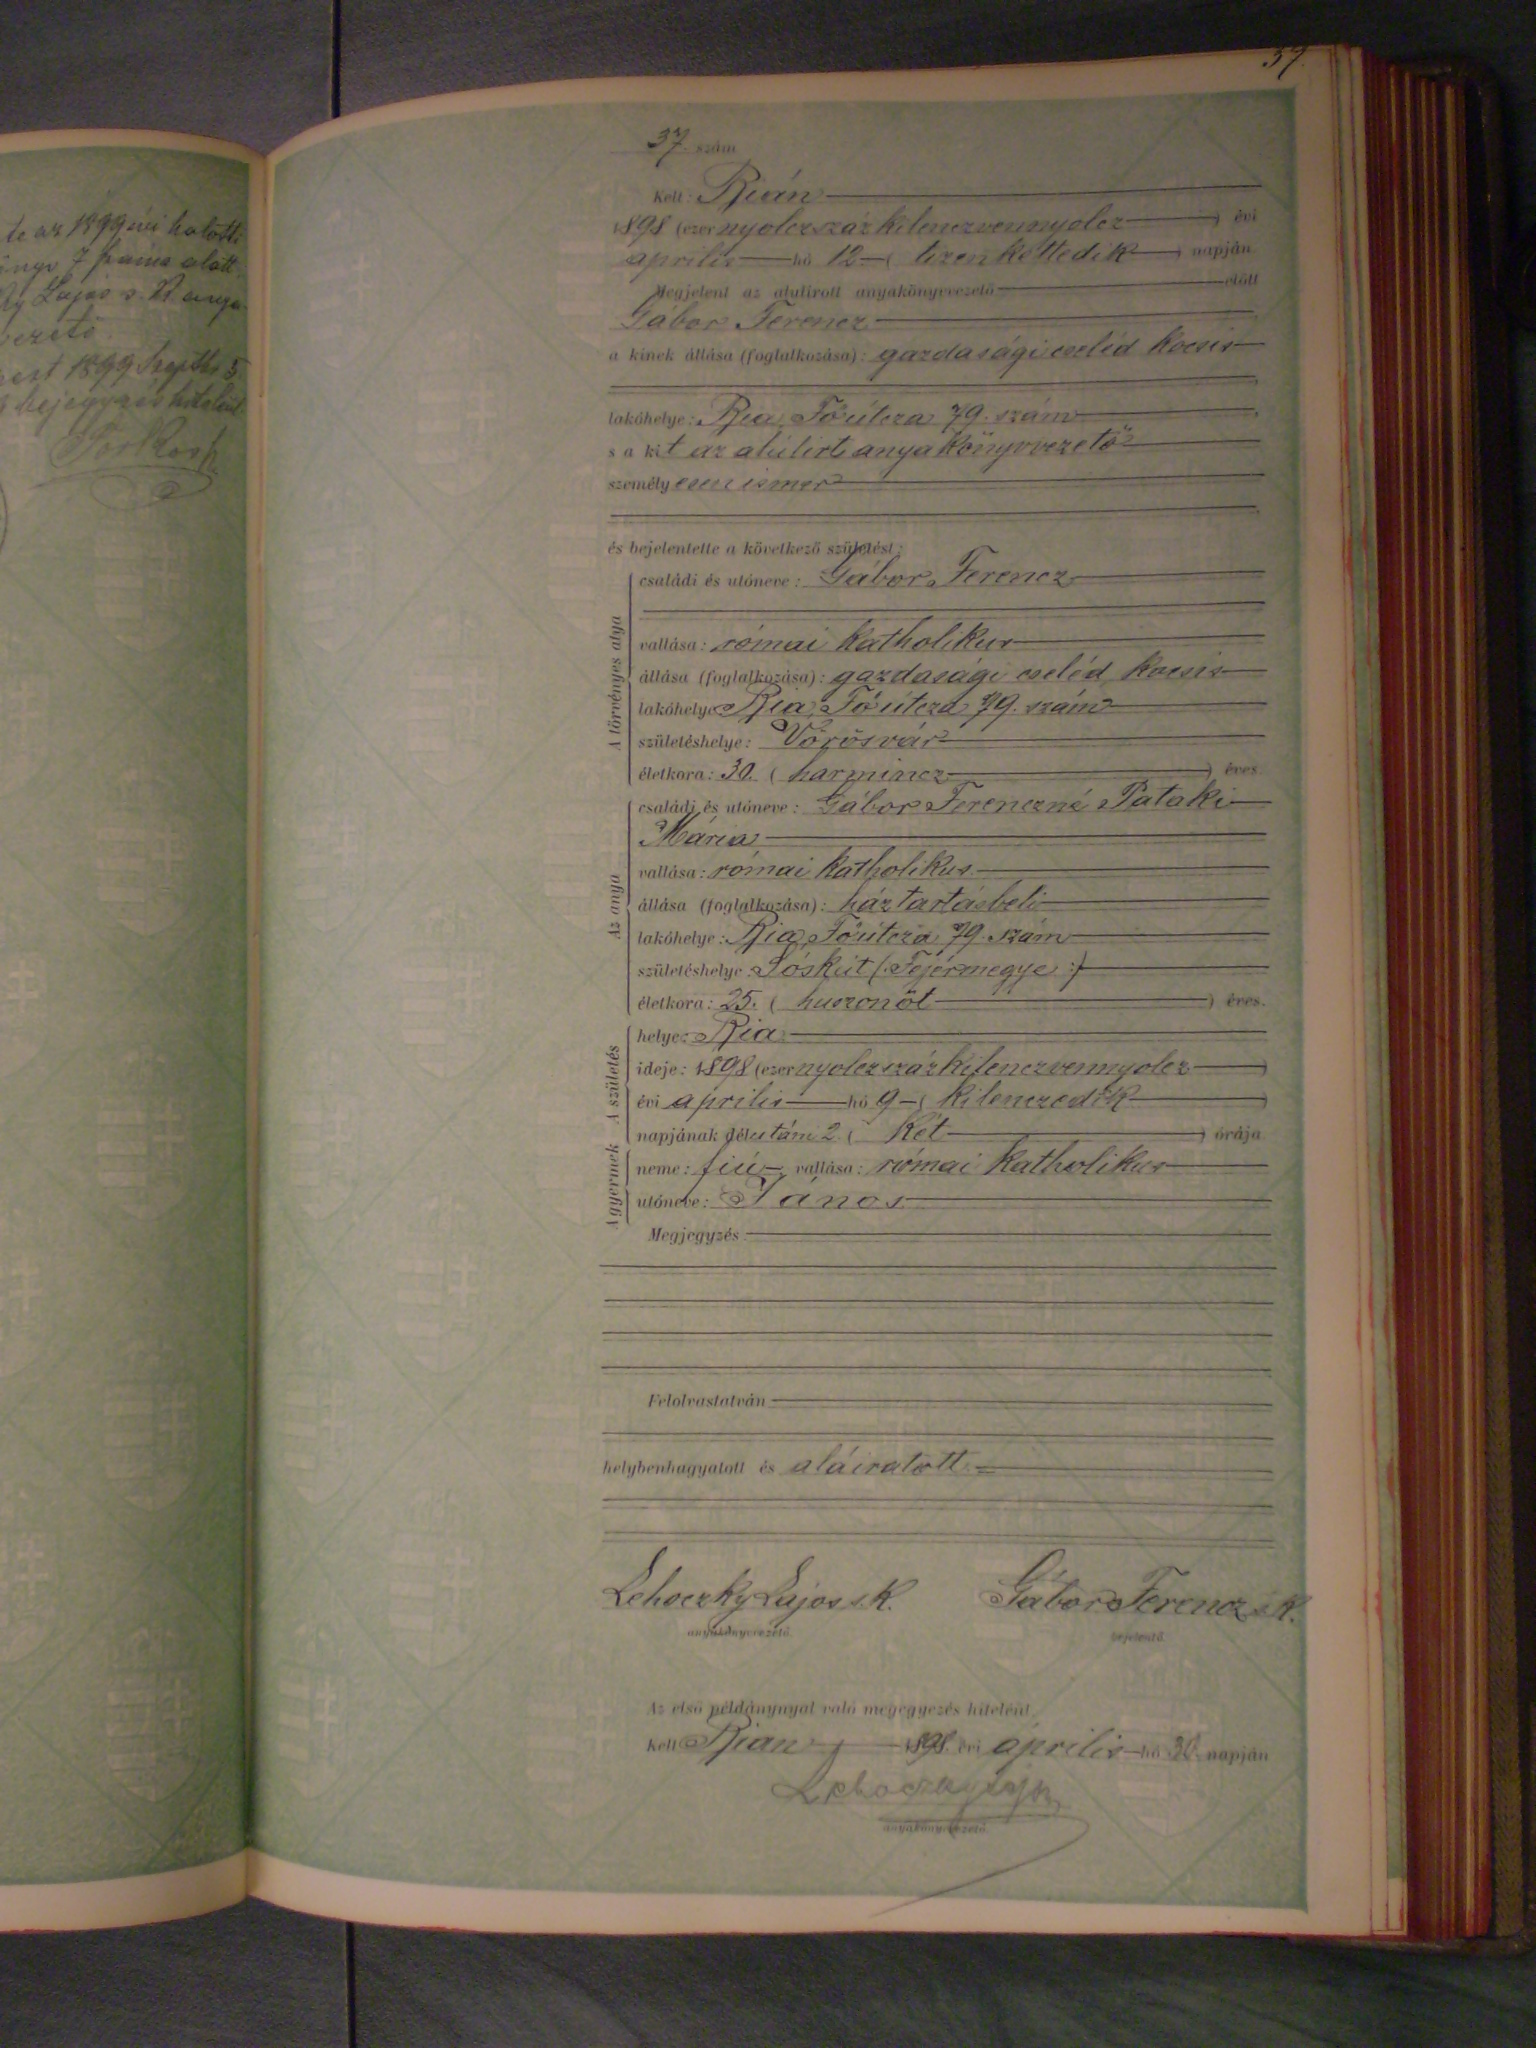 te az 1899 évi halotti
7 száma alatt
Lajos s. k. anya-
vezető
1899 Szeptbr 5.
bejegyzés hiteléül
37
37. szám
Kelt: Pián
1898 (ezernyolczszázkilenczvennyolcz) évi
április hó 12 (tizenkettedik) napján
Megjelent az alulirott anyakönyvvezető előtt
Gábor Ferencz
a kinek állása (foglalkozása): gazdasági cseléd kocsis
lakóhelye: Pia, Főútcza 79. szám
s a kit az alúlirt anyakönyvvezető
személyesen ismer
és bejelentette a következő születést:
A törvényes atya
családi és utóneve: Gábor Ferencz
vallása: római katholikus
állása (foglalkozása): gazdasági cseléd kocsis
lakóhelye: Pia, Főútcza 79. szám
születéshelye: Vörösvár
életkora: 30. (harmincz) éves
Az anya
családi és utóneve: Gábor Ferenczné Pataki
Mária
vallása: római katholikus
állása (foglalkozása): háztartásbeli
lakóhelye: Pia, Főútcza 79. szám
születéshelye: Sóskút (:Fejérmegye:)
életkora: 25. (huszonöt) éves.
A születés
helye: Pia
ideje: 1898 (ezernyolczszázkilenczvennyolcz)
évi április hó 9 (kilenczedik)
napjának délutáni 2. (két) órája
A gyermek
neme: fiú vallása: római katholikus
utóneve: János
Megjegyzés:
Felolvastatván
helybenhagyatott és aláiratott. =
Lehoczky Lajos s. k. Gábor Ferencz s. k.
anyakönyvvezető. bejelentő.
Az első példánynyal való megegyezés hiteléül
Kelt Pián, 1898. évi április hó 30. napján
Lehoczky Lajos
anyakönyvvezető.